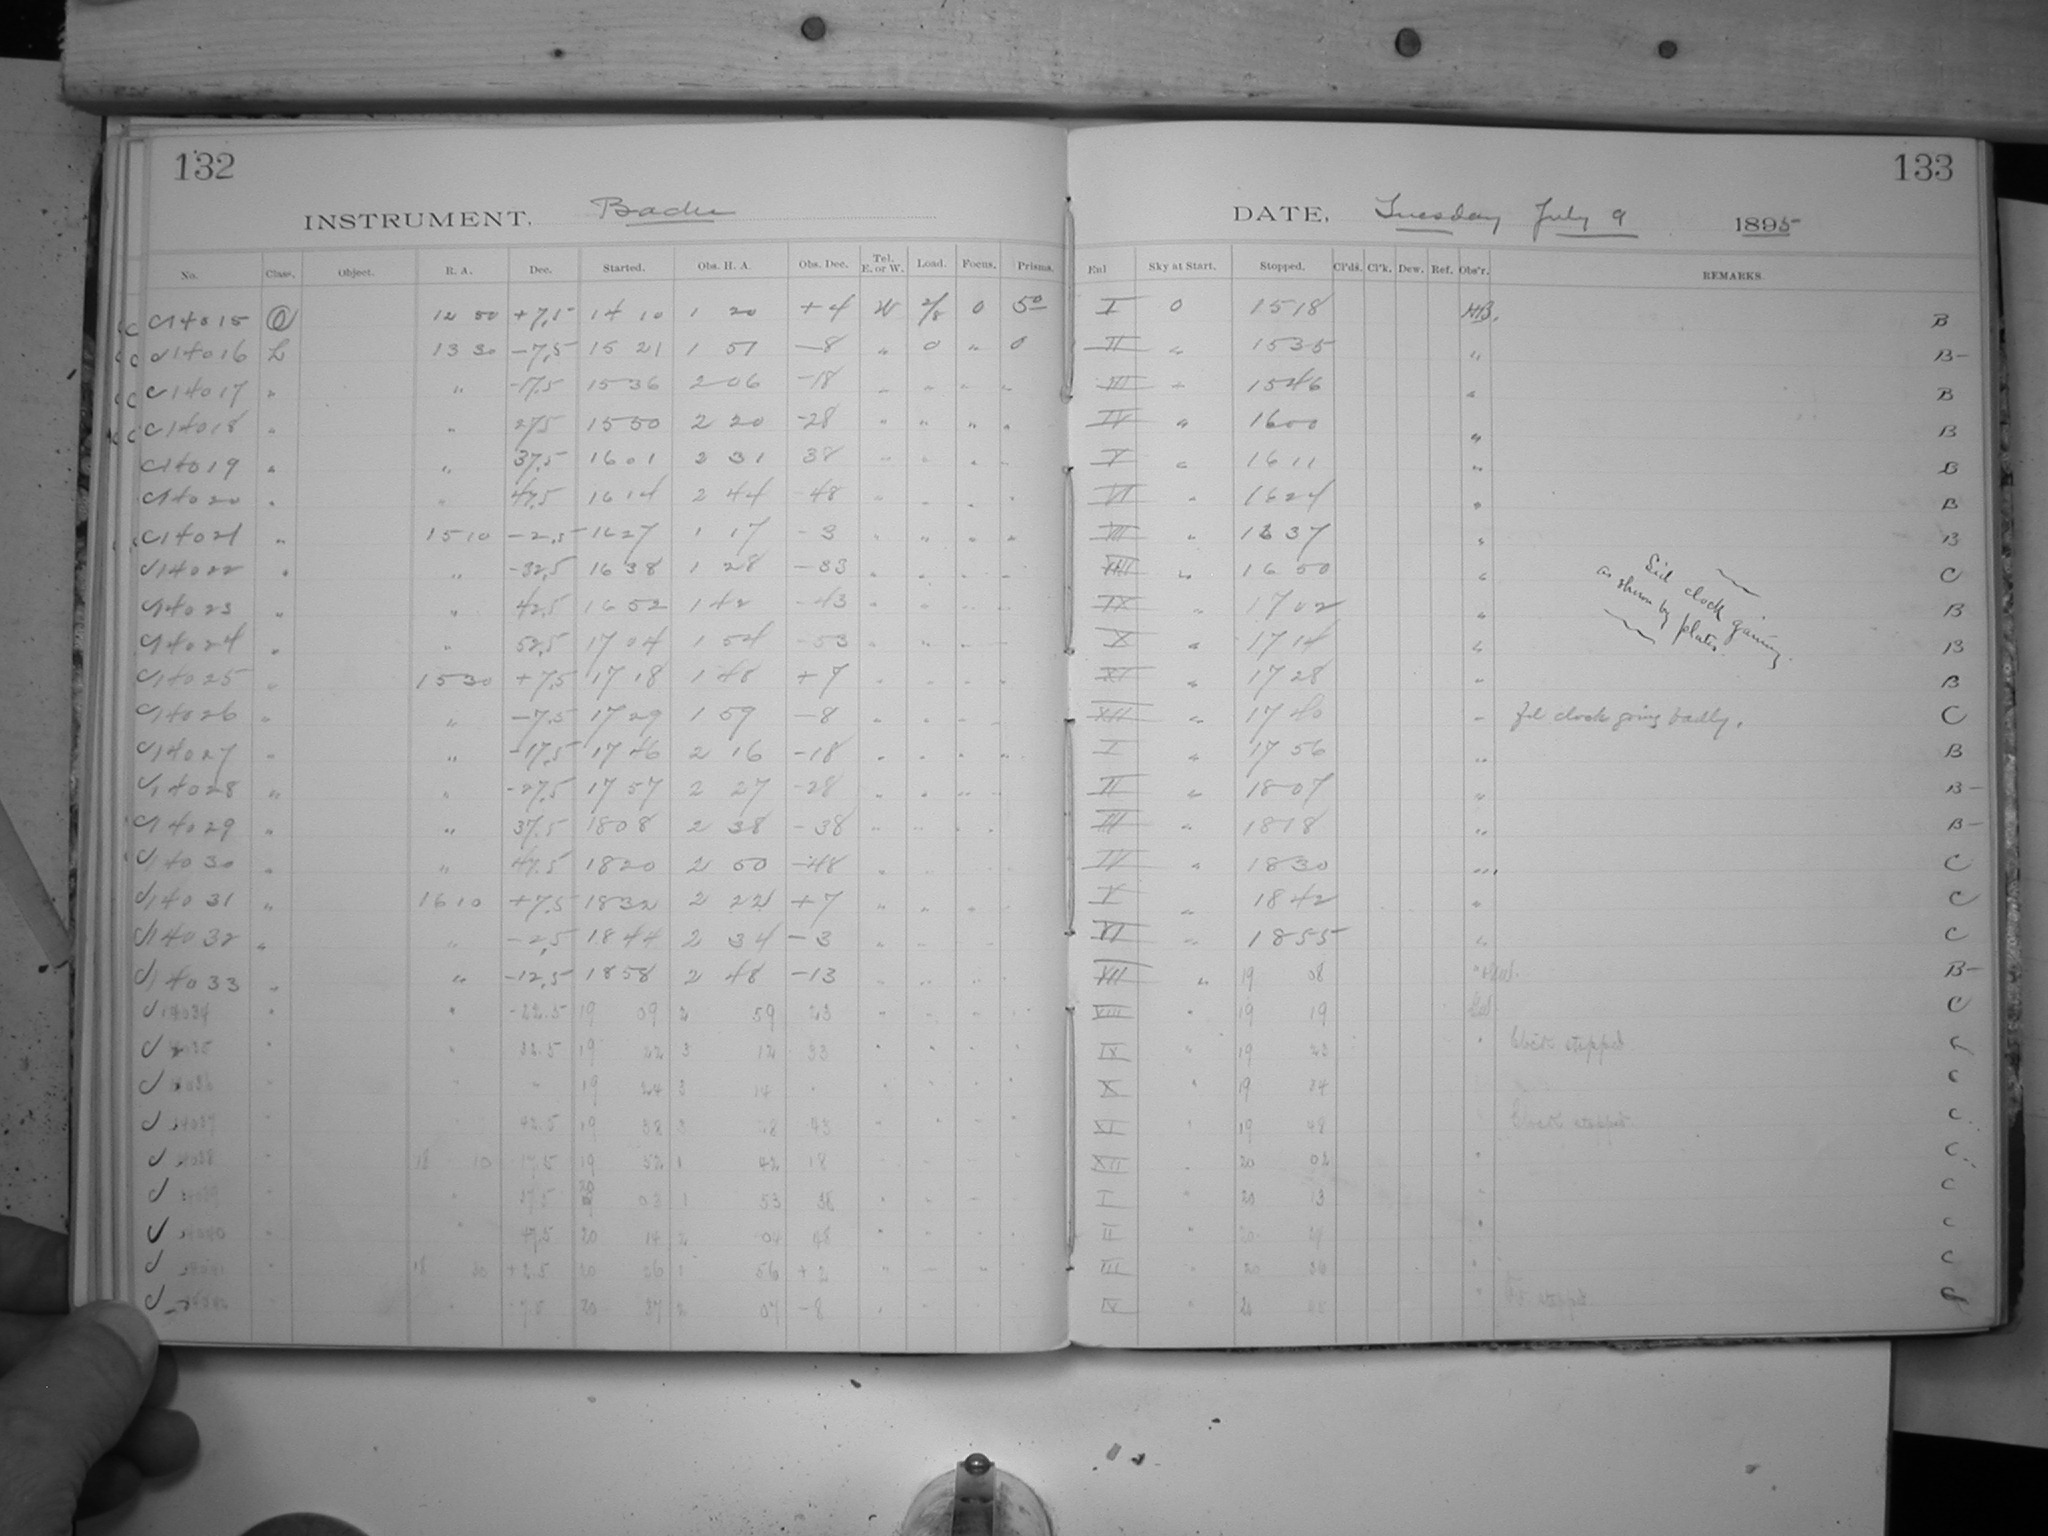 132
INSTRUMENT. Bache
No. Class. Object. R. A. Dec. Started. Obs. H. A. Obs. Dec. Tel. E. or W. Load. Focus. Prisms.
C14015 1250 +7.5 14 10 1 20 +4 W 2/8 0 50
C14016 L 1330 -7.5 15 21 1 51 -8 " 0 " 0
C14017 " " -17.5 1536 2 06 -18 " " " "
C14018 " " 27.5 1550 2 20 -28 " " " "
C14019 " " 37.5 1601 2 31 38 " " "
C14020 " " 47.5 1614 2 44 -48 " " " "
C14021 " 1510 -2.5 1627 1 17 -3 " " " "
C14022 " " -32.5 1638 1 28 -33 " " " "
C14023 " " 42.5 1652 1 42 -43 " " " "
C14024 " " 52.5 1704 1 54 -53 " " " "
C14025 " 1530 +7.5 1718 1 48 +7 " " " "
C14026 " " -7.5 1729 1 59 -8 " " " "
C14027 " " -17.5 1746 2 16 -18 " " " "
C14028 " " -27.5 1757 2 27 -28 " " " "
C14029 " " 37.5 1808 2 38 -38 " " " "
C14030 " " 47.5 1820 2 50 -48 " " " "
C14031 " 1610 +7.5 1832 2 22 +7 " " " "
C14032 " " -2.5 1844 2 34 -3 " " " "
C14033 " " -12.5 1858 2 48 -13 " " " "
14034 " " -22.5 19 09 2 59 23 " " " "
" " 32.5 19 22 3 12 33 " " " "
" " " 19 24 3 14 " " " "
" " 42.5 19 38 3 28 43 " " " "
" 18 10 17.5 19 52 1 42 18 " " "
" " 37.5 20 03 1 53 38 " " "
14040 " " 47.5 20 14 2 04 48 " " "
" 18 30 +2.5 20 26 1 56 +2 " " "
" " 7.5 20 37 2 07 -8 " " "
133
DATE, Tuesday July 9 1895
Enl Sky at Start. Stopped. Cl'ds. Cl'k. Dew. Ref. Obs'r. REMARKS.
I 0 1518 B
II " 1535 " B-
III " 1546 " B
IV " 1600 " B
V " 1611 " B
VI " 1624 " B
VII " 1637 " B
VIII " 1650 " C
IX " 1702 " B
X " 1714 " B
Sid clock gaining
as shown by plates.
XI " 1728 " B
XII " 1740 " Sid clock going badly. C
I " 1756 " B
II " 1807 " B-
III " 1818 " B-
IV " 1830 " C
V " 1842 " C
VI " 1855 " C
VII " 19 08 " B-
VIII " 19 19 C
IX " 19 23 " Clock stopped
X " 19 34 C
XI " 19 48 Clock stopped. C
XII 20 02 " C
I " 20 13 C
II " 20 24 " C
III " 20 36 " C
IV " 20 " stopped